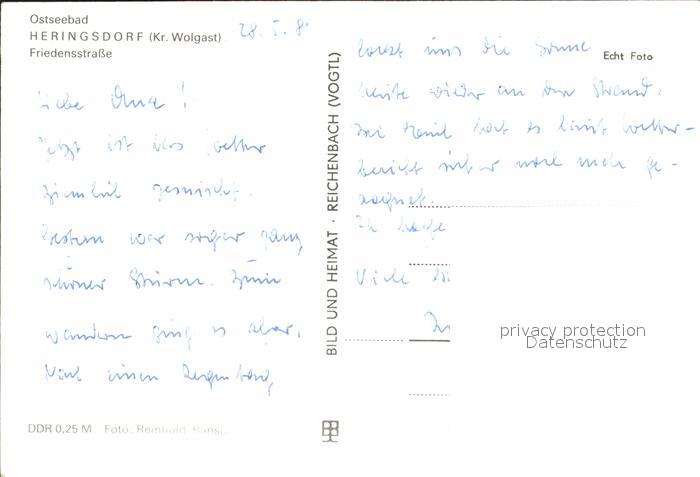 Ostseebad
HERINGSDORF (Kr. Wolgast)
Friedensstraße
28. 5. 8
Liebe Oma!
Jetzt ist das Wetter
ziemlich gemischt.
Gestern war sogar ganz
schöner Sturm. Zum
wandern ging es aber.
Nach einem Regentag
DDR 0,25 M Foto: Reinhold
BILD UND HEIMAT · REICHENBACH (VOGTL)
Echt Foto
lockt uns die Sonne
heute wieder an den Strand.
hat es laut Wetter-
bericht sicher noch mehr ge-
regnet.
Ich hoffe
Viele
privacy protection
Datenschutz